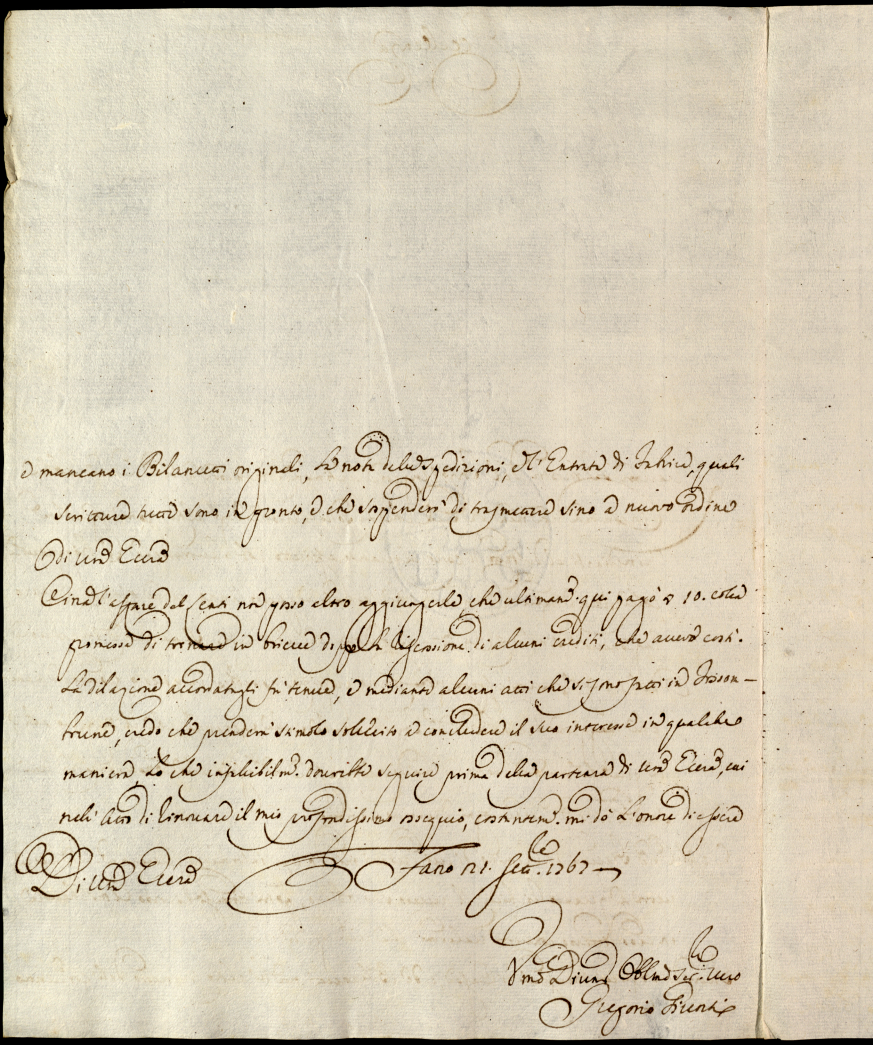 e mancano i Bilancetti originali, la nota delle Spedizioni, e l'Entrate di quali
scritture tutte sono in pronto, e che sospenderò di trasmettere sino a nuovo ordine
di Vrã Eccrã
Circa l'affare del Centi non posso altro aggiungerle, che ultimam.e qui pagò 10. colla
promessa di tornare in brieve dopo la riscossione di alcuni crediti, che aveva costì.
La dilazione accordatagli fù tenue, e mediante alcuni atti che si sono fatti in Fosson-
brune, credo che prenderà stimolo sollecito a concludere il suo interesse in qualche
maniera, lo che infallibilm.e dovrebbe seguire prima della partenza di Vrã Eccrã, cui
nell'atto di rinovare il mio profondissimo ossequio, costantem.e mi dò l'onore di essere
Di Vrã Eccrã Fano 21. Sett.e 1767
Umõ Divmõ Obblmõ Ser.e Vero
Gregorio